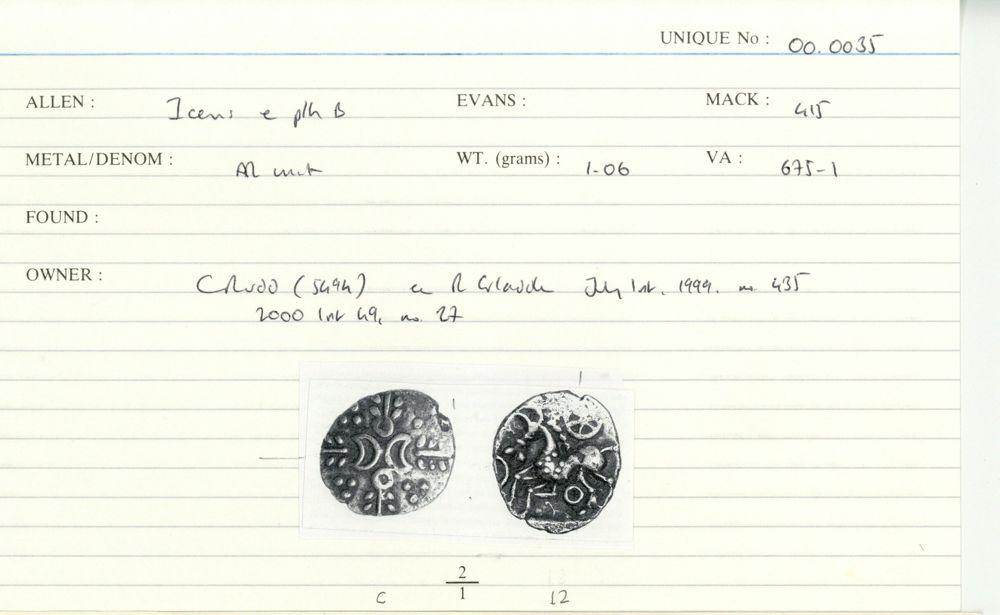 UNIQUE No : 00.0035
ALLEN : Iceni e pth B EVANS : MACK : 415
METAL/DENOM : AR unit WT. (grams) : 1.06 VA : 675-1
FOUND :
OWNER : C Rudd (5494) ex R July list. 1999. no. 435
2000 list 49, no. 27
2
1
C 12